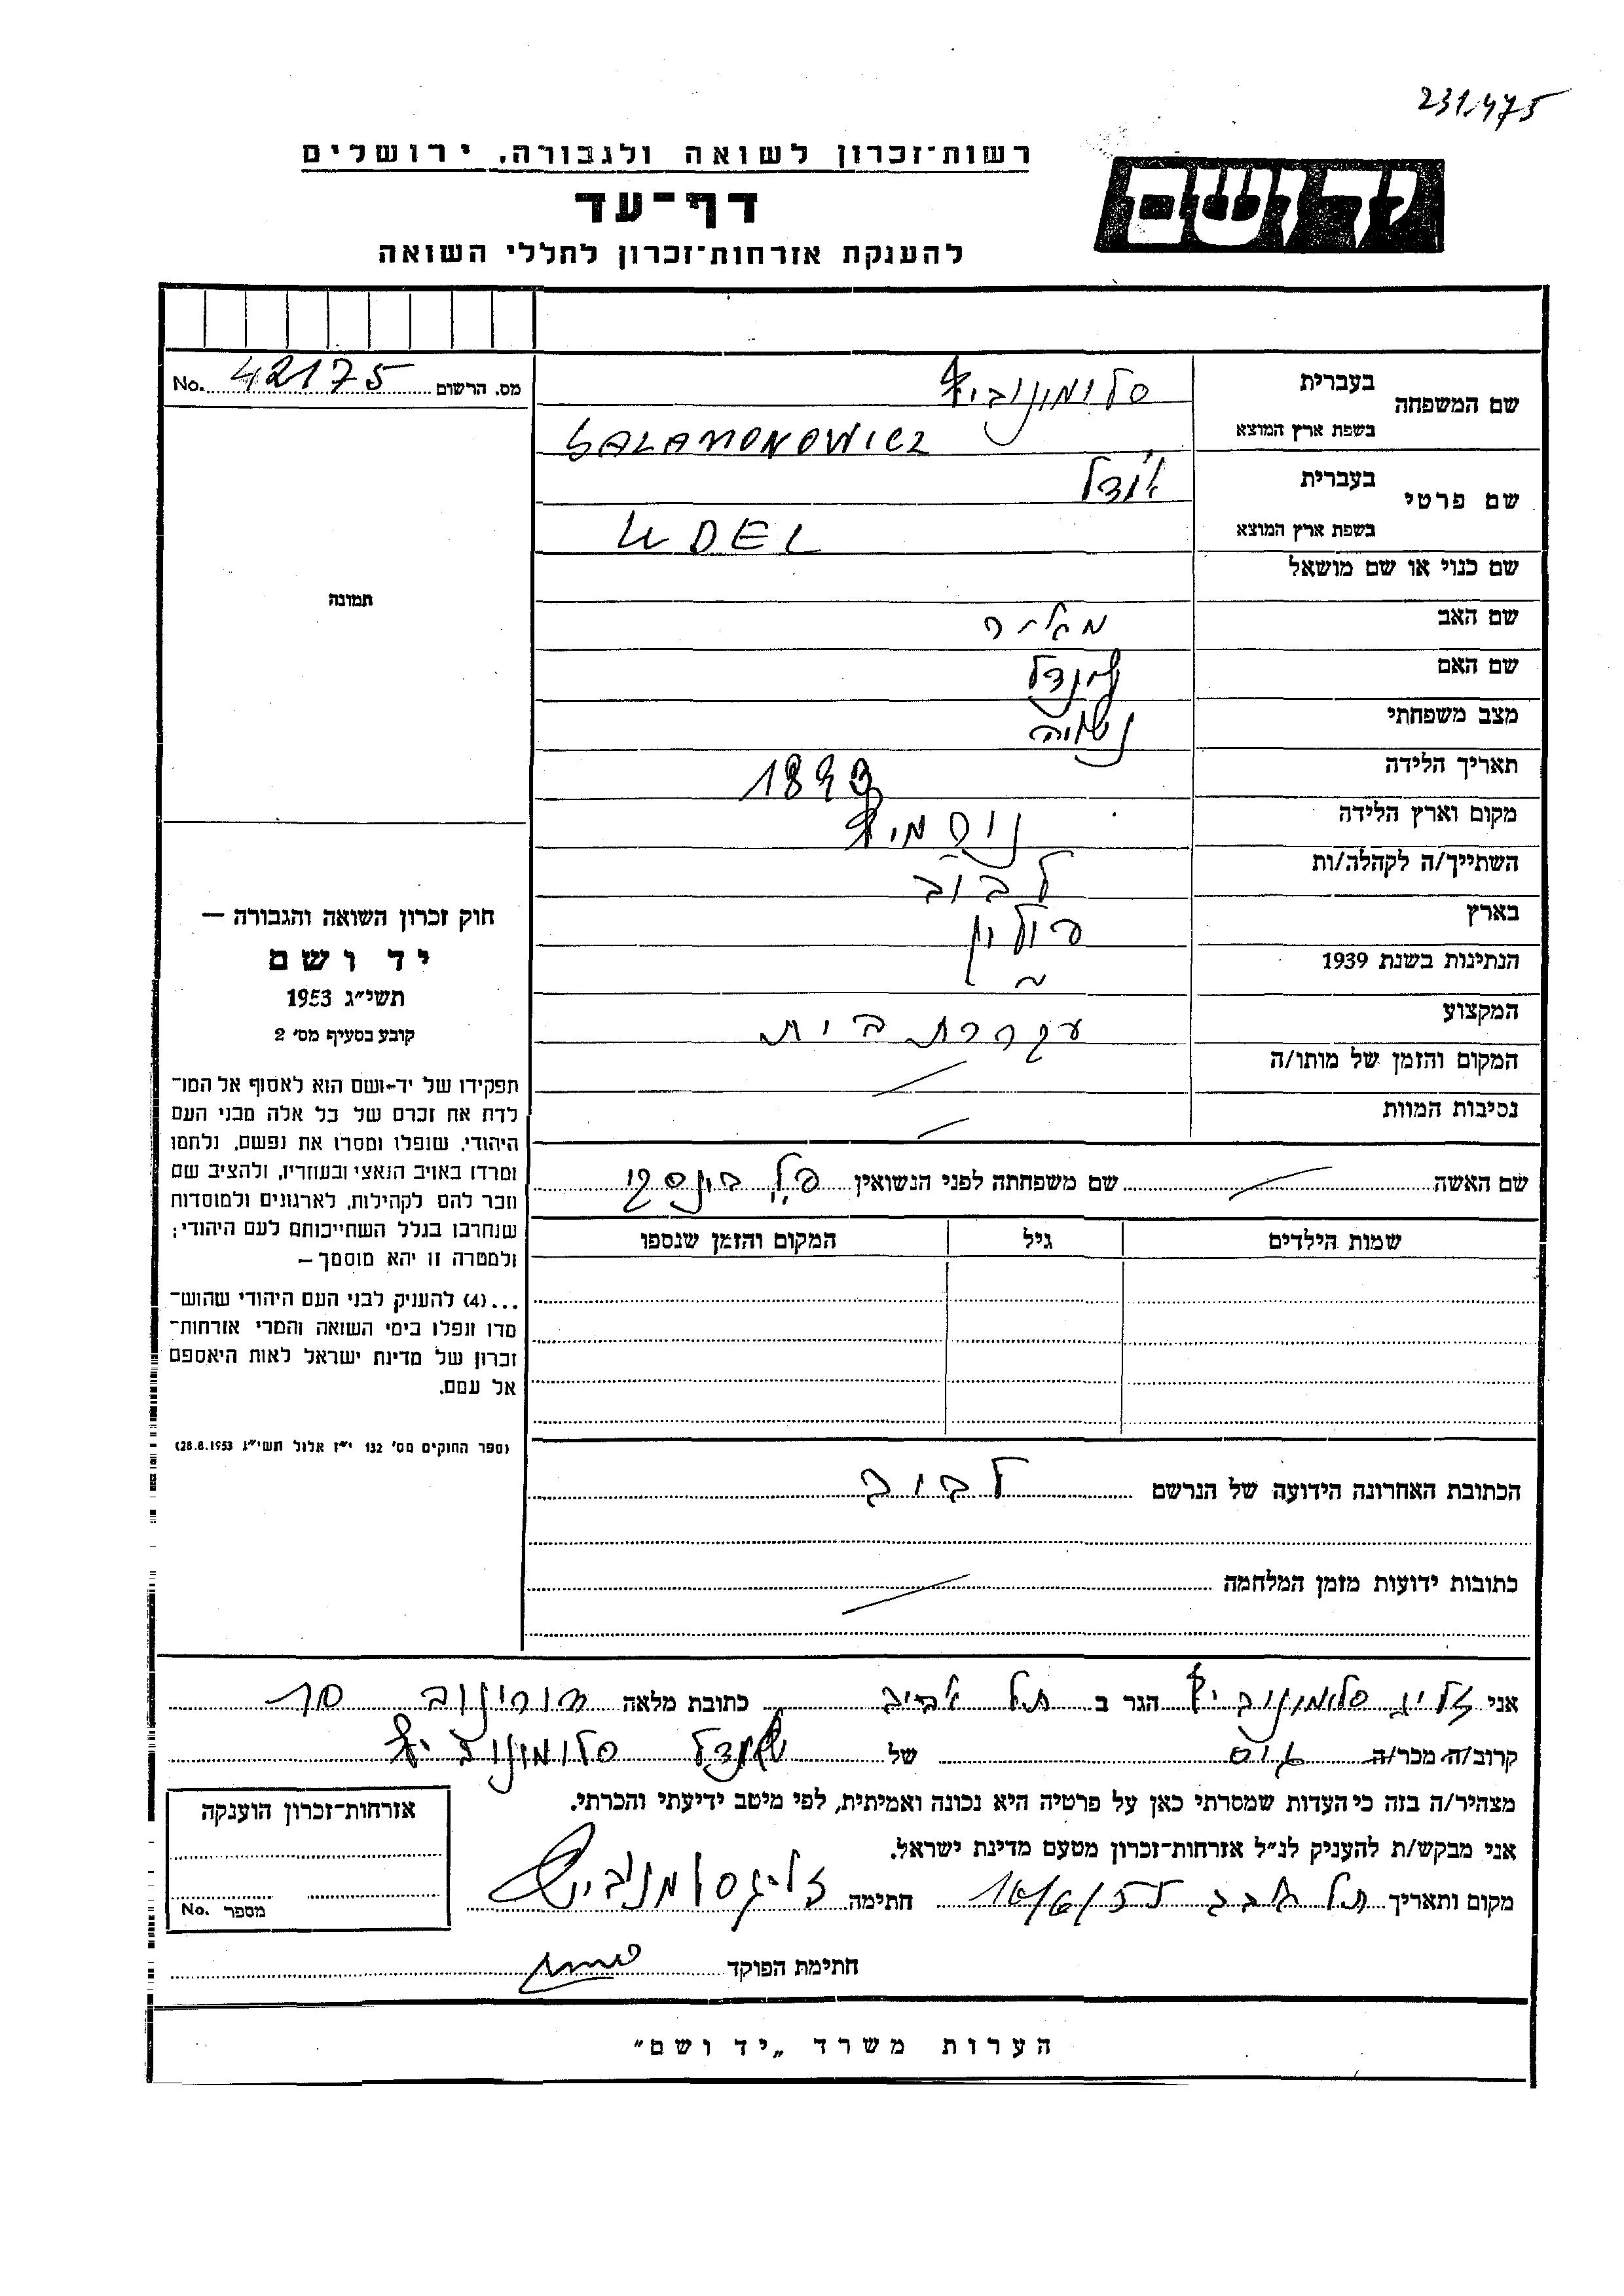 231.475
רשות־זכרון לשואה ולגבורה, ירושלים
יד ושם
דף־עד
להענקת אזרחות־זכרון לחללי השואה
מס. הרשום 42175 No.
שם המשפחה
בעברית סלומונוביץ
בשפת ארץ המוצא SALAMONOWICZ
שם פרטי
בעברית אודל
בשפת ארץ המוצא UDEL
שם כנוי או שם מושאל
שם האב
שם האם
מצב משפחתי נשואה
תאריך הלידה
מקום וארץ הלידה
השתייך/ה לקהלה/ות לבוב
בארץ פולין
הנתינות בשנת 1939 "
המקצוע עקרת בית
המקום והזמן של מותו/ה
נסיבות המוות
שם האשה שם משפחתה לפני הנשואין
שמות הילדים גיל המקום והזמן שנספו
הכתובת האחרונה הידועה של הנרשם לבוב
כתובות ידועות מזמן המלחמה
תמונה
חוק זכרון השואה והגבורה —
יד ושם
תשי״ג 1953
קובע בסעיף מס׳ 2
תפקידו של יד-ושם הוא לאסוף אל המו־
לדת את זכרם של כל אלה מבני העם
היהודי, שנפלו ומסרו את נפשם, נלחמו
ומרדו באויב הנאצי ובעוזריו, ולהציב שם
וזכר להם לקהילות, לארגונים ולמוסדות
שנחרבו בגלל השתייכותם לעם היהודי;
ולמטרה זו יהא מוסמך —
...(4) להעניק לבני העם היהודי שהוש־
מדו ונפלו בימי השואה והמרי אזרחות־
זכרון של מדינת ישראל לאות היאספם
אל עמם.
(ספר החוקים מס׳ 132 י״ז אלול תשי״ג 28.8.1953)
אני זליג סלומונוביץ הגר ב תל אביב כתובת מלאה
קרוב/ה מכר/ה גיס של סלומונוביץ
מצהיר/ה בזה כי העדות שמסרתי כאן על פרטיה היא נכונה ואמיתית, לפי מיטב ידיעתי והכרתי.
אני מבקש/ת להעניק לנ״ל אזרחות־זכרון מטעם מדינת ישראל.
מקום ותאריך תל אביב 16/6/55 חתימה
חתימת הפוקד
אזרחות־זכרון הוענקה
מספר No.
הערות משרד „יד ושם"